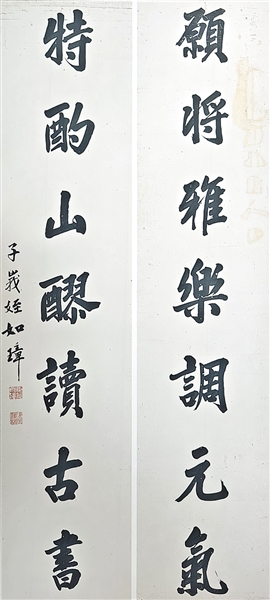 願將雅樂調元氣
特酌山醪讀古書
子峩姪如璋